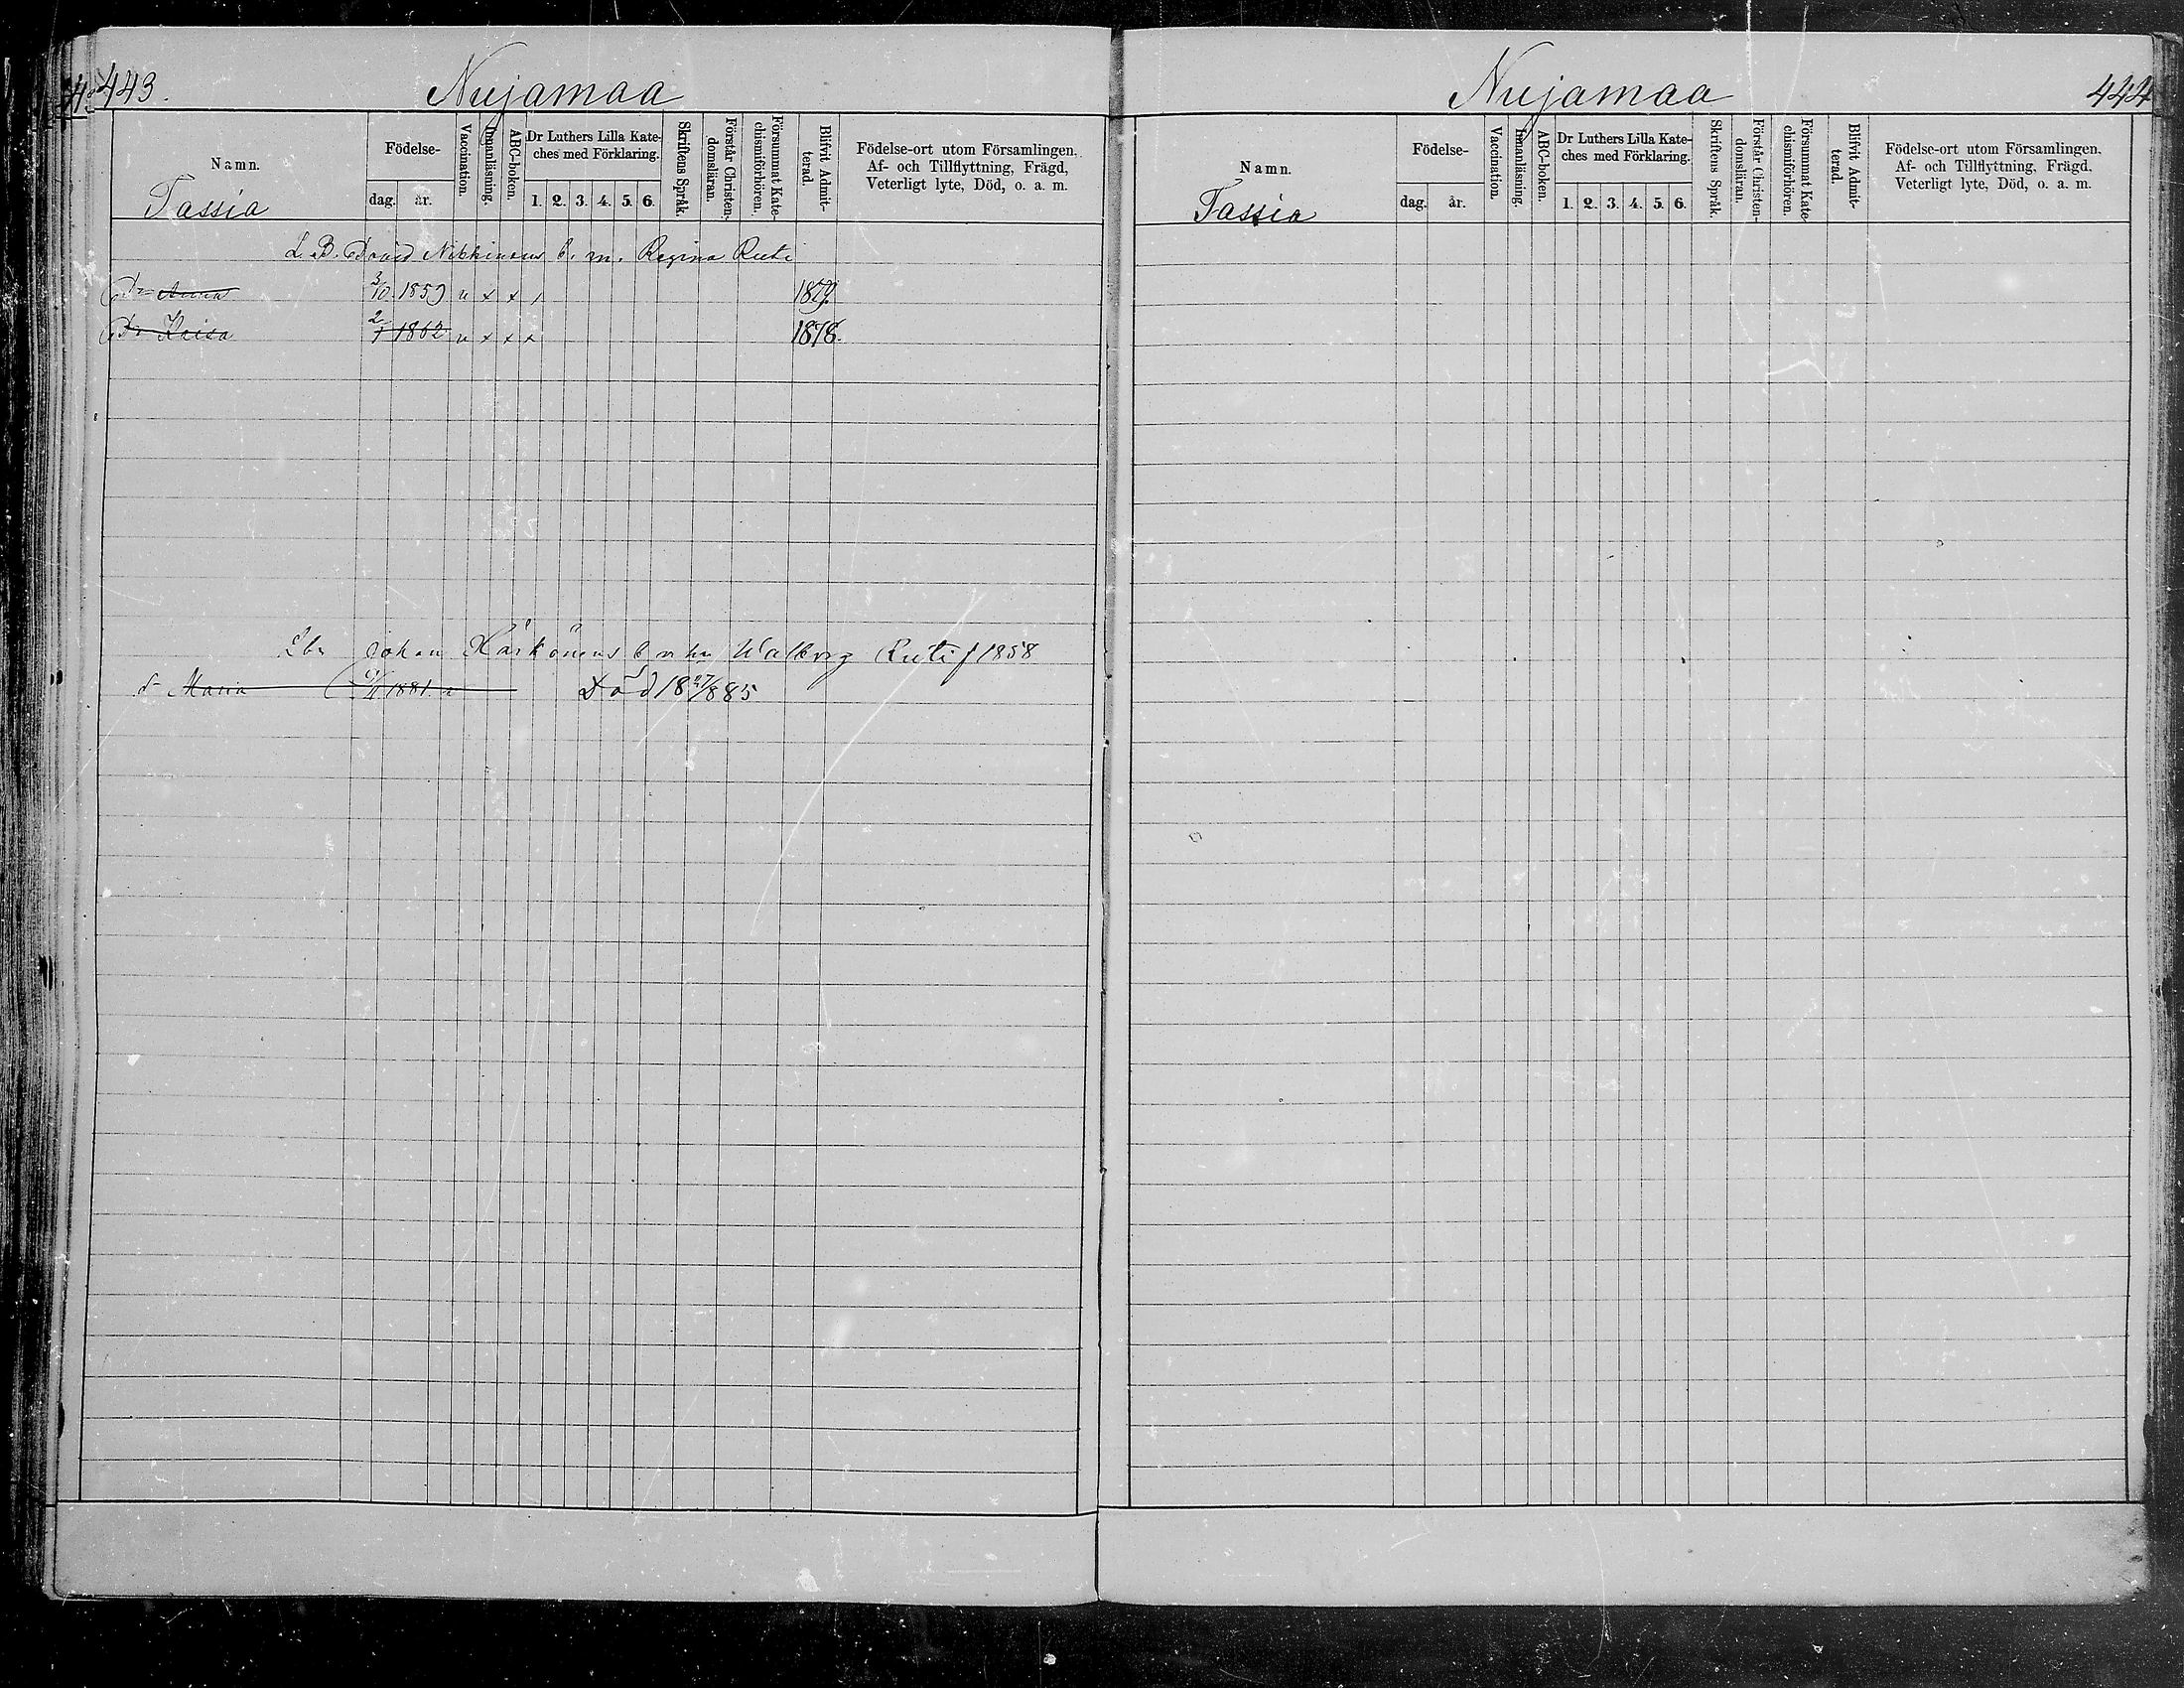 443. Nuijamaa
Namn. Födelse- dag. år. Vaccination. Innanläsning. ABC-boken. Dr Luthers Lilla Kateches med Förklaring. 1. 2. 3. 4. 5. 6. Skriftens Språk. Förstår Christendomsläran. Försummat Katechismiförhören. Blifvit Admitterad. Födelse-ort utom Församlingen. Af- och Tillflyttning, Frägd, Veterligt lyte, Död, o. a. m.
Tassia
L. B. David Nikkinens b. m. Regina Ruti
Dr Anna 3/10 1859 v x x / 1879
Dr Kaisa 2/1 1862 v x x x 1878.
Lbr Johan Härkönens b m hu Walborg Ruti f 1858
d. Maria 1881 v Död 18 27/8 85
Nuijamaa 444
Namn. Födelse- dag. år. Vaccination. Innanläsning. ABC-boken. Dr Luthers Lilla Kateches med Förklaring. 1. 2. 3. 4. 5. 6. Skriftens Språk. Förstår Christendomsläran. Försummat Katechismiförhören. Blifvit Admitterad. Födelse-ort utom Församlingen. Af- och Tillflyttning, Frägd. Veterligt lyte, Död, o. a. m.
Tassia